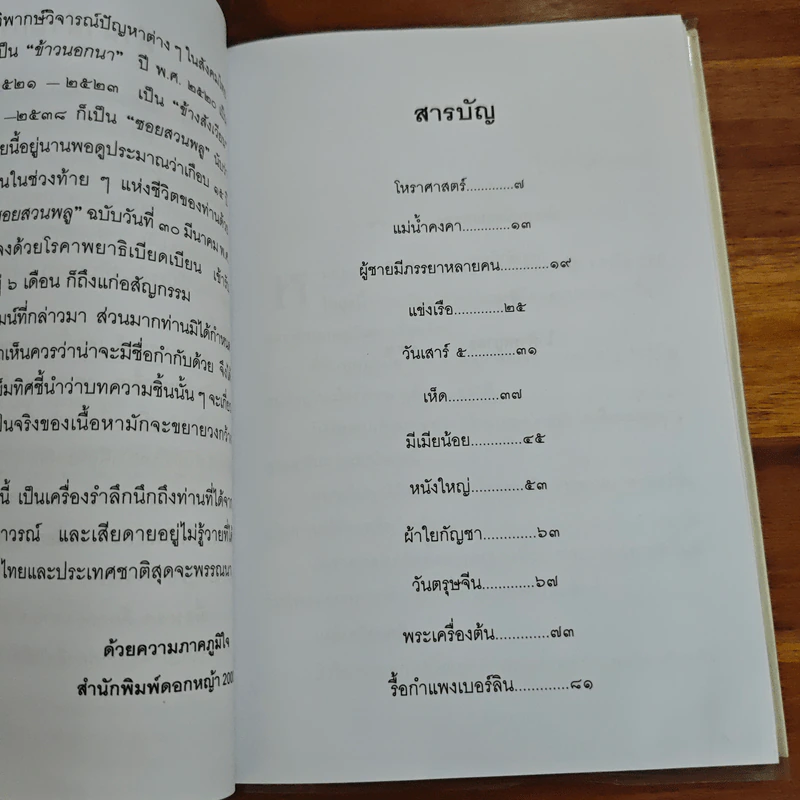 วิพากษ์วิจารณ์ปัญหาต่าง ๆ ในสังคมไทย
เป็น “ข้าวนอกนา” ปี พ.ศ. ๒๕๒๐
๕๒๑ – ๒๕๒๓ เป็น “ข้างสังเวียน”
– ๒๕๓๘ ก็เป็น “ซอยสวนพลู”
นี้อยู่นานพอดูประมาณว่าเกือบ ๑๕ ปี
ในช่วงท้าย ๆ แห่งชีวิตของท่านด้วย
ซอยสวนพลู” ฉบับวันที่ ๓๐ มีนาคม พ.ศ.
ลงด้วยโรคาพยาธิเบียดเบียน
๖ เดือน ก็ถึงแก่อสัญกรรม
ที่กล่าวมา ส่วนมากท่านมิได้กำหนด
เห็นควรว่าน่าจะมีชื่อกำกับด้วย
เข็มทิศชี้นำว่าบทความชิ้นนั้น ๆ จะ
เป็นจริงของเนื้อหามักจะขยายวงกว้าง
นี้ เป็นเครื่องรำลึกนึกถึงท่านที่ได้จาก
และเสียดายอยู่ไม่รู้วายที่
ไทยและประเทศชาติสุดจะพรรณนา
ด้วยความภาคภูมิใจ
สำนักพิมพ์ดอกหญ้า 200
สารบัญ
โหราศาสตร์.............๗
แม่น้ำคงคา.............๑๓
ผู้ชายมีภรรยาหลายคน.............๑๙
แข่งเรือ.............๒๕
วันเสาร์ ๕.............๓๑
เห็ด.............๓๗
มีเมียน้อย.............๔๕
หนังใหญ่.............๕๓
ผ้าใยกัญชา.............๖๓
วันตรุษจีน.............๖๗
พระเครื่องต้น.............๗๓
รื้อกำแพงเบอร์ลิน.............๘๑